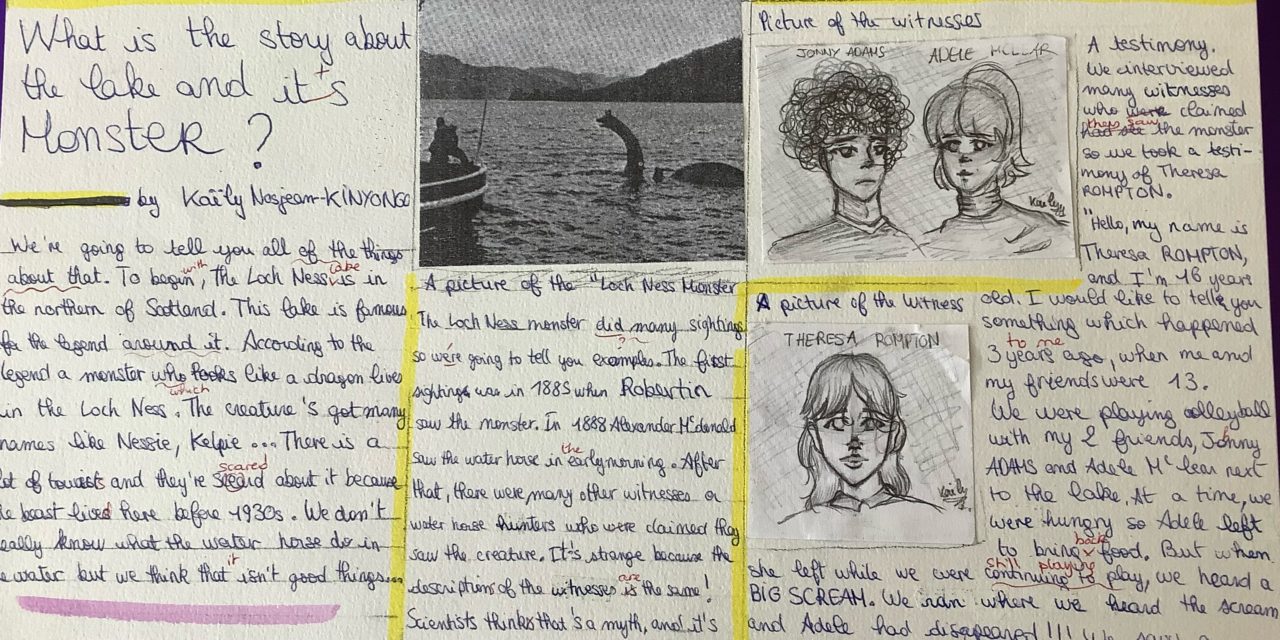 What is the story about
the lake and it's
Monster ?
by Kaïly Nosjean-KINYONGO
We're going to tell you all of the things
about that. To begin with, the Loch Ness lake is in
the northern of Scotland. This lake is famous
for the legend around it. According to the
legend a monster who looks like a dragon lives
which
in the Loch Ness. The creature's got many
names like Nessie, Kelpie ... There is a
lot of tourists and they're scared about it because
beast lived here before 1930s. We don't
really know what the water horse do in
water but we think that it isn't good things...
A picture of the "Loch Ness Monster
The Loch Ness monster did many sightings
?
so we're going to tell you examples. The first
sightings was in 1885 when Robertin
saw the monster. In 1888 Alexander Mcdonald
saw the water horse in the early morning. After
that, there were many other witnesses or
water horse hunters who were claimed they
saw the creature. It's strange because the
description of the witnesses are is the same!
Scientists thinks that's a myth, and it's
Picture of the witnesses
JONNY ADAMS
ADELE
Kaïly
A testimony.
We interviewed
many witnesses
who were claimed
they saw
had see the monster
so we took a testi-
mony of Theresa
ROMPTON.
"Hello, my name is
Theresa ROMPTON,
and I'm 16 years
A picture of the witness
THERESA ROMPTON
Kaïly
old. I would like to tell you
something which happened
to me
3 years ago, when me and
my friends were 13.
We were playing volleyball
with my 2 friends, Johnny
ADAMS and Adele Mc lear next
to the lake. At a time, we
were hungry so Adele left
to bring back food. But when
still playing
she left while we were continuing to play, we heard a
BIG SCREAM. We ran where we heard the scream
and Adele had disappeared!!!